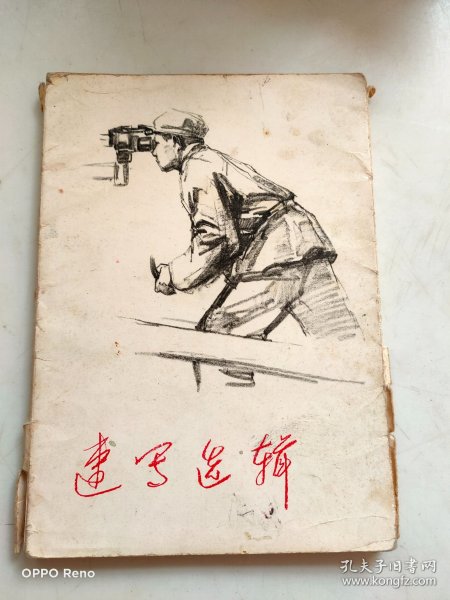 速写选辑
OPPO Reno
孔夫子旧书网
www.kongfz.com